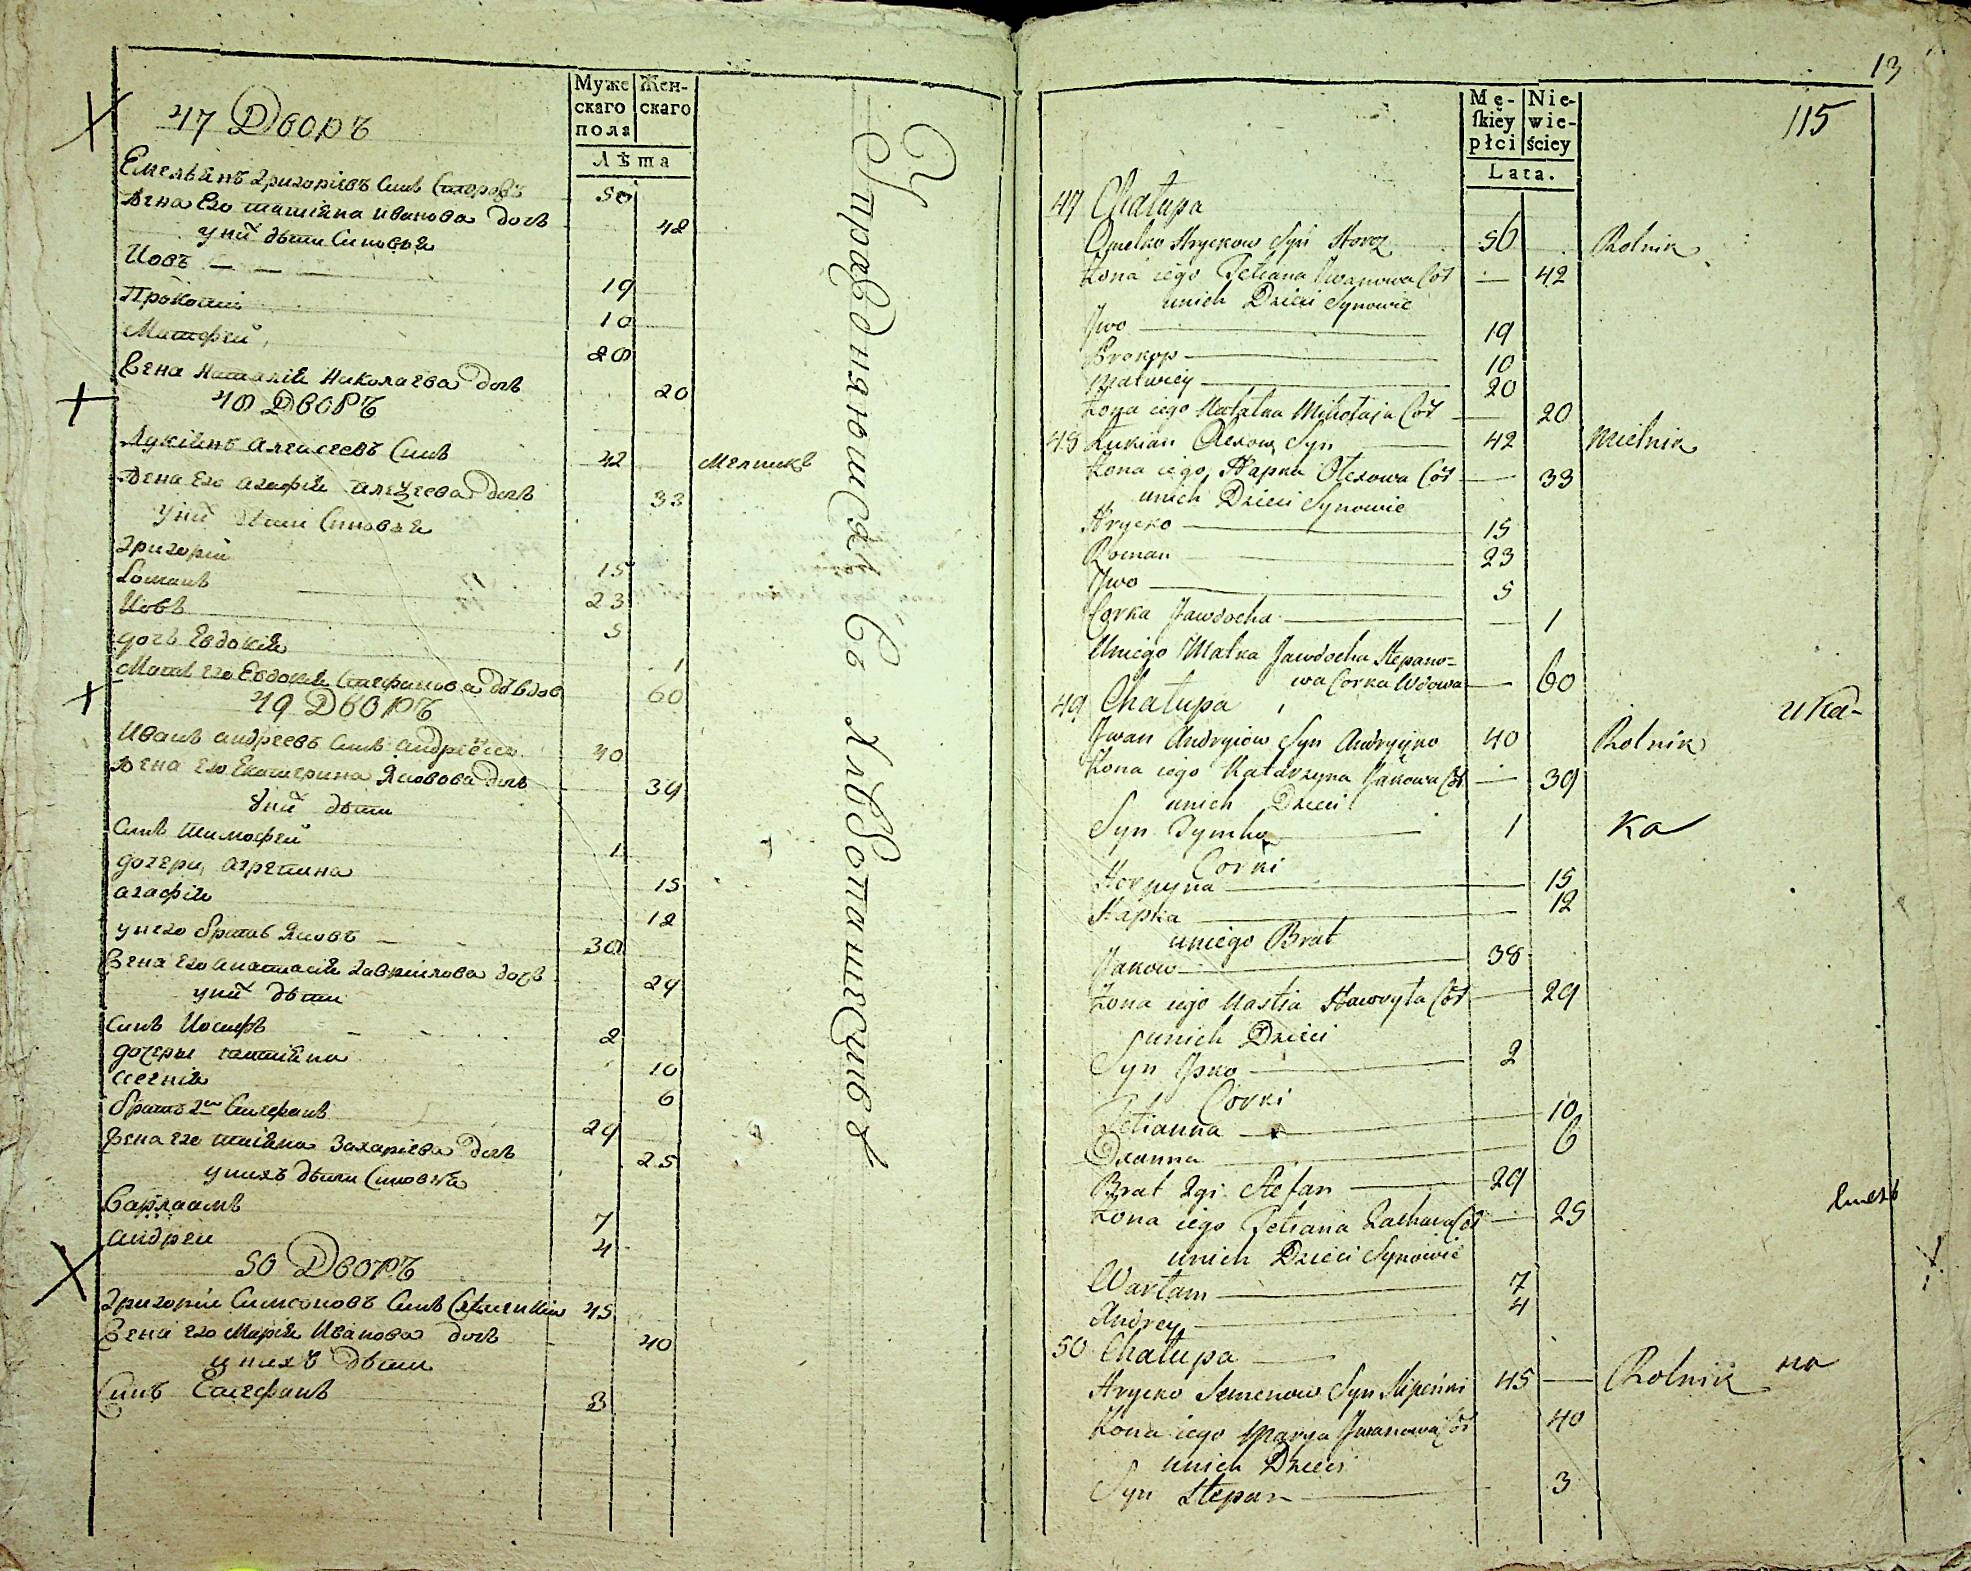 Муже
скаго
пола
Жен-
скаго
Лѣта
47 Дворъ
Емелѣянъ Григорiевъ Синъ 50
Жена Его татiяна иванова дочь 42
уних дѣти Синовья
Иовъ — — — 19
Прокопiй 10
Матфей 20
Жена Наталiя Николаева дочь 20
48 Дворъ
Лукiянъ алексеевъ Синъ 42 Мелникъ
Жена Его агафiя дочь 33
уних дѣти Синовья
григорiй 15
Романъ 23
Иовъ 5
дочь Евдокiя 1
Мать его Евдокiя Стефанова 60
49 Дворъ
Иванъ андреевъ Синъ 40
Жена его Екатерина Яковова дочь 39
уних дѣти
Синъ тимофей 1
дочери агрепина 15
агафiя 12
унего братъ Яковъ — 38
Жена Его анастасiя гаврiилова дочь 29
уних дѣти
Синъ Иосифъ 2
дочеры татiяна 10
6
братъ 2й Стефанъ 29
Жена его татiяна Захарiева дочь 25
унихъ дѣти Синовья
Варлаамъ 7
андрей 4
50 Дворъ
григорiй Симеоновъ Синъ 45
Жена его Марiя Иванова дочь 40
унихъ дѣти
Синъ Стефанъ 3
Упраздняющися Съ
13
115
Mę-
ſkiey
płci
Nie-
wie-
ściey
Lata.
47 Chałupa
Omelko Hryckow Syn 56 Rolnik
Żona iego Tetiana Jwanowa Cór — 42
unich Dzieci Synowie
Jwo — 19
Prokop — 10
Matwiey — 20
Żona iego Natalka Mikołaja Cór — 20
48 Łukian Olexow Syn — 42 Mielnik
Żona iego Hapka Olexowa Cór — 33
unich Dzieci Synowie
Hrycko — 15
Roman — 23
Jwo — 5
Corka Jawdocha — 1
Uniego Matka Jawdocha Stepano=
wa Corka Wdowa — 60
49 Chałupa
и Ка-
Jwan Andryiow Syn Andryyko 40 Rolnik
Żona iego Katarzyna Jakowa Cór — 39
unich Dzieci
Syn Tymko — 1 Ка
Corki
Horpyna — 15
Hapka — 12
uniego Brat
Jakow — 38
Żona iego Nastia Hawryła Cór — 29
unich Dzieci
Syn Jpko — 2
Corki
Tetianna — 10
Oxanna — 6
Brat 2gi Stefan — 29
Żona iego Tetiana Zachara Cór — 25
unich Dzieci Synowie
Warłam — 7
Andrey — 4
50 Chałupa —
Hrycko Semenow Syn 45 — Rolnik на
Żona iego Marya Jwanowa Cór 40
unich Dzieci
Syn Stepan — 3